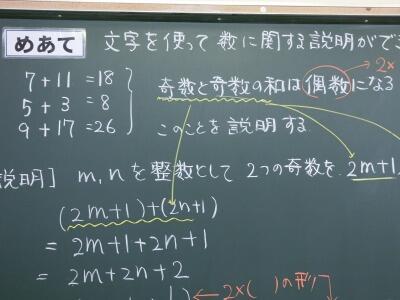 めあて 文字を使って数に関する説明ができ
7+11=18
5+3=8
9+17=26
2x
奇数と奇数の和は偶数になる
このことを説明する
説明] m,nを整数として 2つの奇数を 2m+1,
(2m+1)+(2n+1)
= 2m+1+2n+1
= 2m+2n+2
←2×( )の形